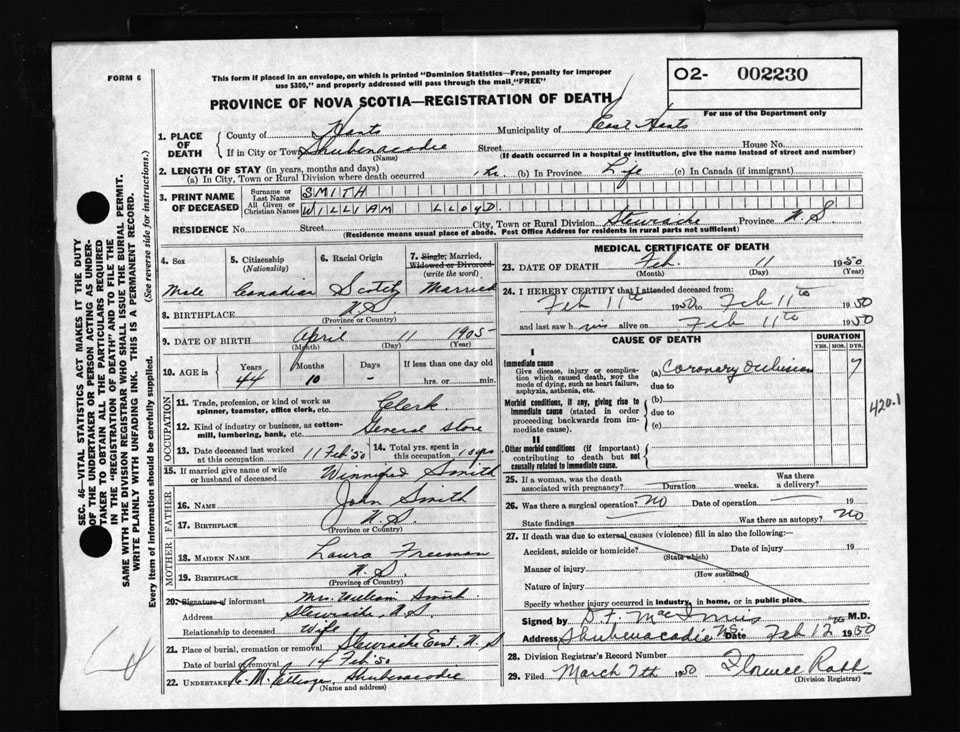 FORM 6
This form if placed in an envelope, on which is printed "Dominion Statistics—Free, penalty for improper
use $300," and properly addressed will pass through the mail "FREE"
O2- 002230
For use of the Department only
PROVINCE OF NOVA SCOTIA—REGISTRATION OF DEATH
1. PLACE OF DEATH
County of Hants Municipality of East Hants
If in City or Town Shubenacadie Street House No.
(Name) (If death occurred in a hospital or institution, give the name instead of street and number)
2. LENGTH OF STAY (in years, months and days)
(a) In City, Town or Rural Division where death occurred 1 hr. (b) In Province Life (c) In Canada (if immigrant)
3. PRINT NAME OF DECEASED
Surname or Last Name SMITH
All Given or Christian Names WILLIAM LLOYD
RESIDENCE No. Street City, Town or Rural Division Stewiacke Province N.S.
(Residence means usual place of abode. Post Office Address for residents in rural parts not sufficient)
4. Sex Male
5. Citizenship (Nationality) Canadian
6. Racial Origin Scotch
7. Single, Married, Widowed or Divorced (write the word) Married
8. BIRTHPLACE N.S.
(Province or Country)
9. DATE OF BIRTH April 11 1905
(Month) (Day) (Year)
10. AGE in Years 44 Months 10 Days - If less than one day old hrs. or min.
OCCUPATION
11. Trade, profession, or kind of work as spinner, teamster, office clerk, etc. Clerk
12. Kind of industry or business, as cotton-mill, lumbering, bank, etc. General Store
13. Date deceased last worked at this occupation 11 Feb 50
14. Total yrs. spent in this occupation 10 yrs
15. If married give name of wife or husband of deceased Winnifred Smith
FATHER
16. NAME John Smith
17. BIRTHPLACE N.S.
(Province or Country)
MOTHER
18. MAIDEN NAME Laura Freeman
19. BIRTHPLACE N.S.
(Province or Country)
20. Signature of informant Mrs. William Smith
Address Stewiacke, N.S
Relationship to deceased Wife
21. Place of burial, cremation or removal Stewiacke East, N.S
Date of burial or removal 14 Feb '50
22. UNDERTAKER Shubenacadie
(Name and address)
MEDICAL CERTIFICATE OF DEATH
23. DATE OF DEATH Feb. 11 1950
(Month) (Day) (Year)
24. I HEREBY CERTIFY that I attended deceased from:
Feb 11th 1950 to Feb 11th 1950
and last saw him alive on Feb 11th 1950
CAUSE OF DEATH
DURATION
YRS. MOS. DYS.
I
Immediate cause
Give disease, injury or complication which caused death, NOT the mode of dying, such as heart failure, asphyxia, asthenia, etc.
(a) Coronary Occlusion 7
due to
Morbid conditions, if any, giving rise to immediate cause (stated in order proceeding backwards from immediate cause).
(b)
due to
(c)
420.1
II
Other morbid conditions (if important) contributing to death but not causally related to immediate cause.
25. If a woman, was the death associated with pregnancy? Duration weeks. Was there a delivery?
26. Was there a surgical operation? No Date of operation 19
State findings Was there an autopsy? No
27. If death was due to external causes (violence) fill in also the following:—
Accident, suicide or homicide? Date of injury 19
(State which)
Manner of injury
(How sustained)
Nature of injury
Specify whether injury occurred in industry, in home, or in public place
Signed by D.F. MacInnis M.D.
Address Shubenacadie N.S. Date Feb 12th 1950
28. Division Registrar's Record Number
29. Filed March 7th 1950 Florence Robb
(Division Registrar)
SEC. 46—VITAL STATISTICS ACT MAKES IT THE DUTY
OF THE UNDERTAKER OR PERSON ACTING AS UNDER-
TAKER TO OBTAIN ALL THE PARTICULARS REQUIRED
IN THE "REGISTRATION OF DEATH" AND TO FILE THE
SAME WITH THE DIVISION REGISTRAR WHO SHALL ISSUE THE BURIAL PERMIT.
WRITE PLAINLY WITH UNFADING INK. THIS IS A PERMANENT RECORD.
Every item of information should be carefully supplied. (See reverse side for instructions.)